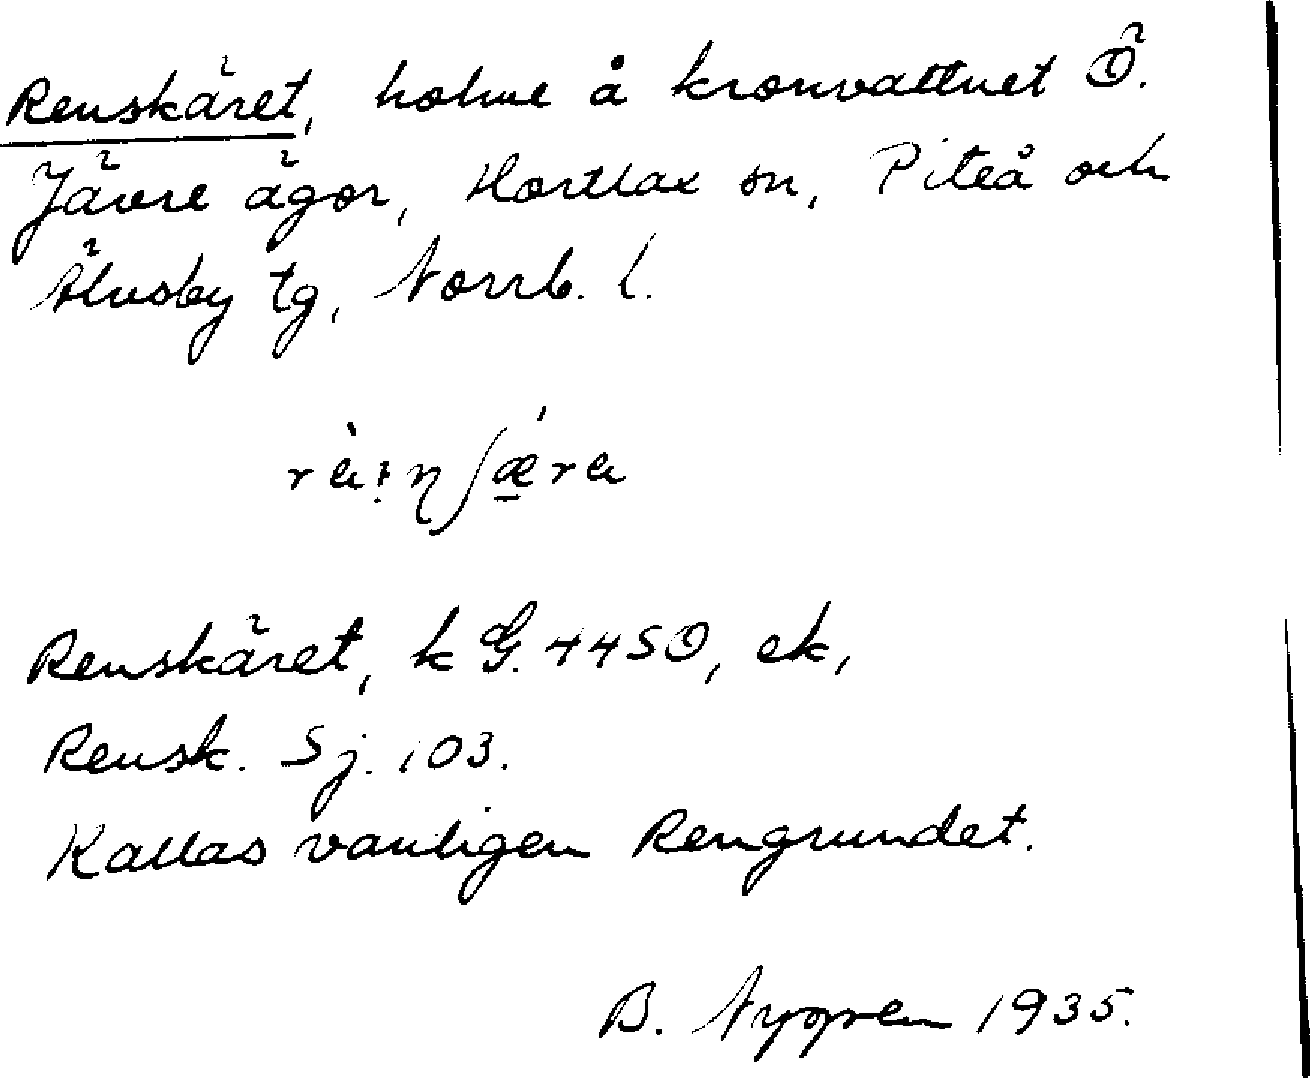 Renskäret, holme å kronvattnet Ö.
Jävre ägor, Hortlax sn, Piteå och
Älvsby tg, Norrb. l.
Renskäret, k G. 4450, ek,
Rensk. Sj. 103.
Kallas vanligen Rengrundet.
B. Nygren 1935.